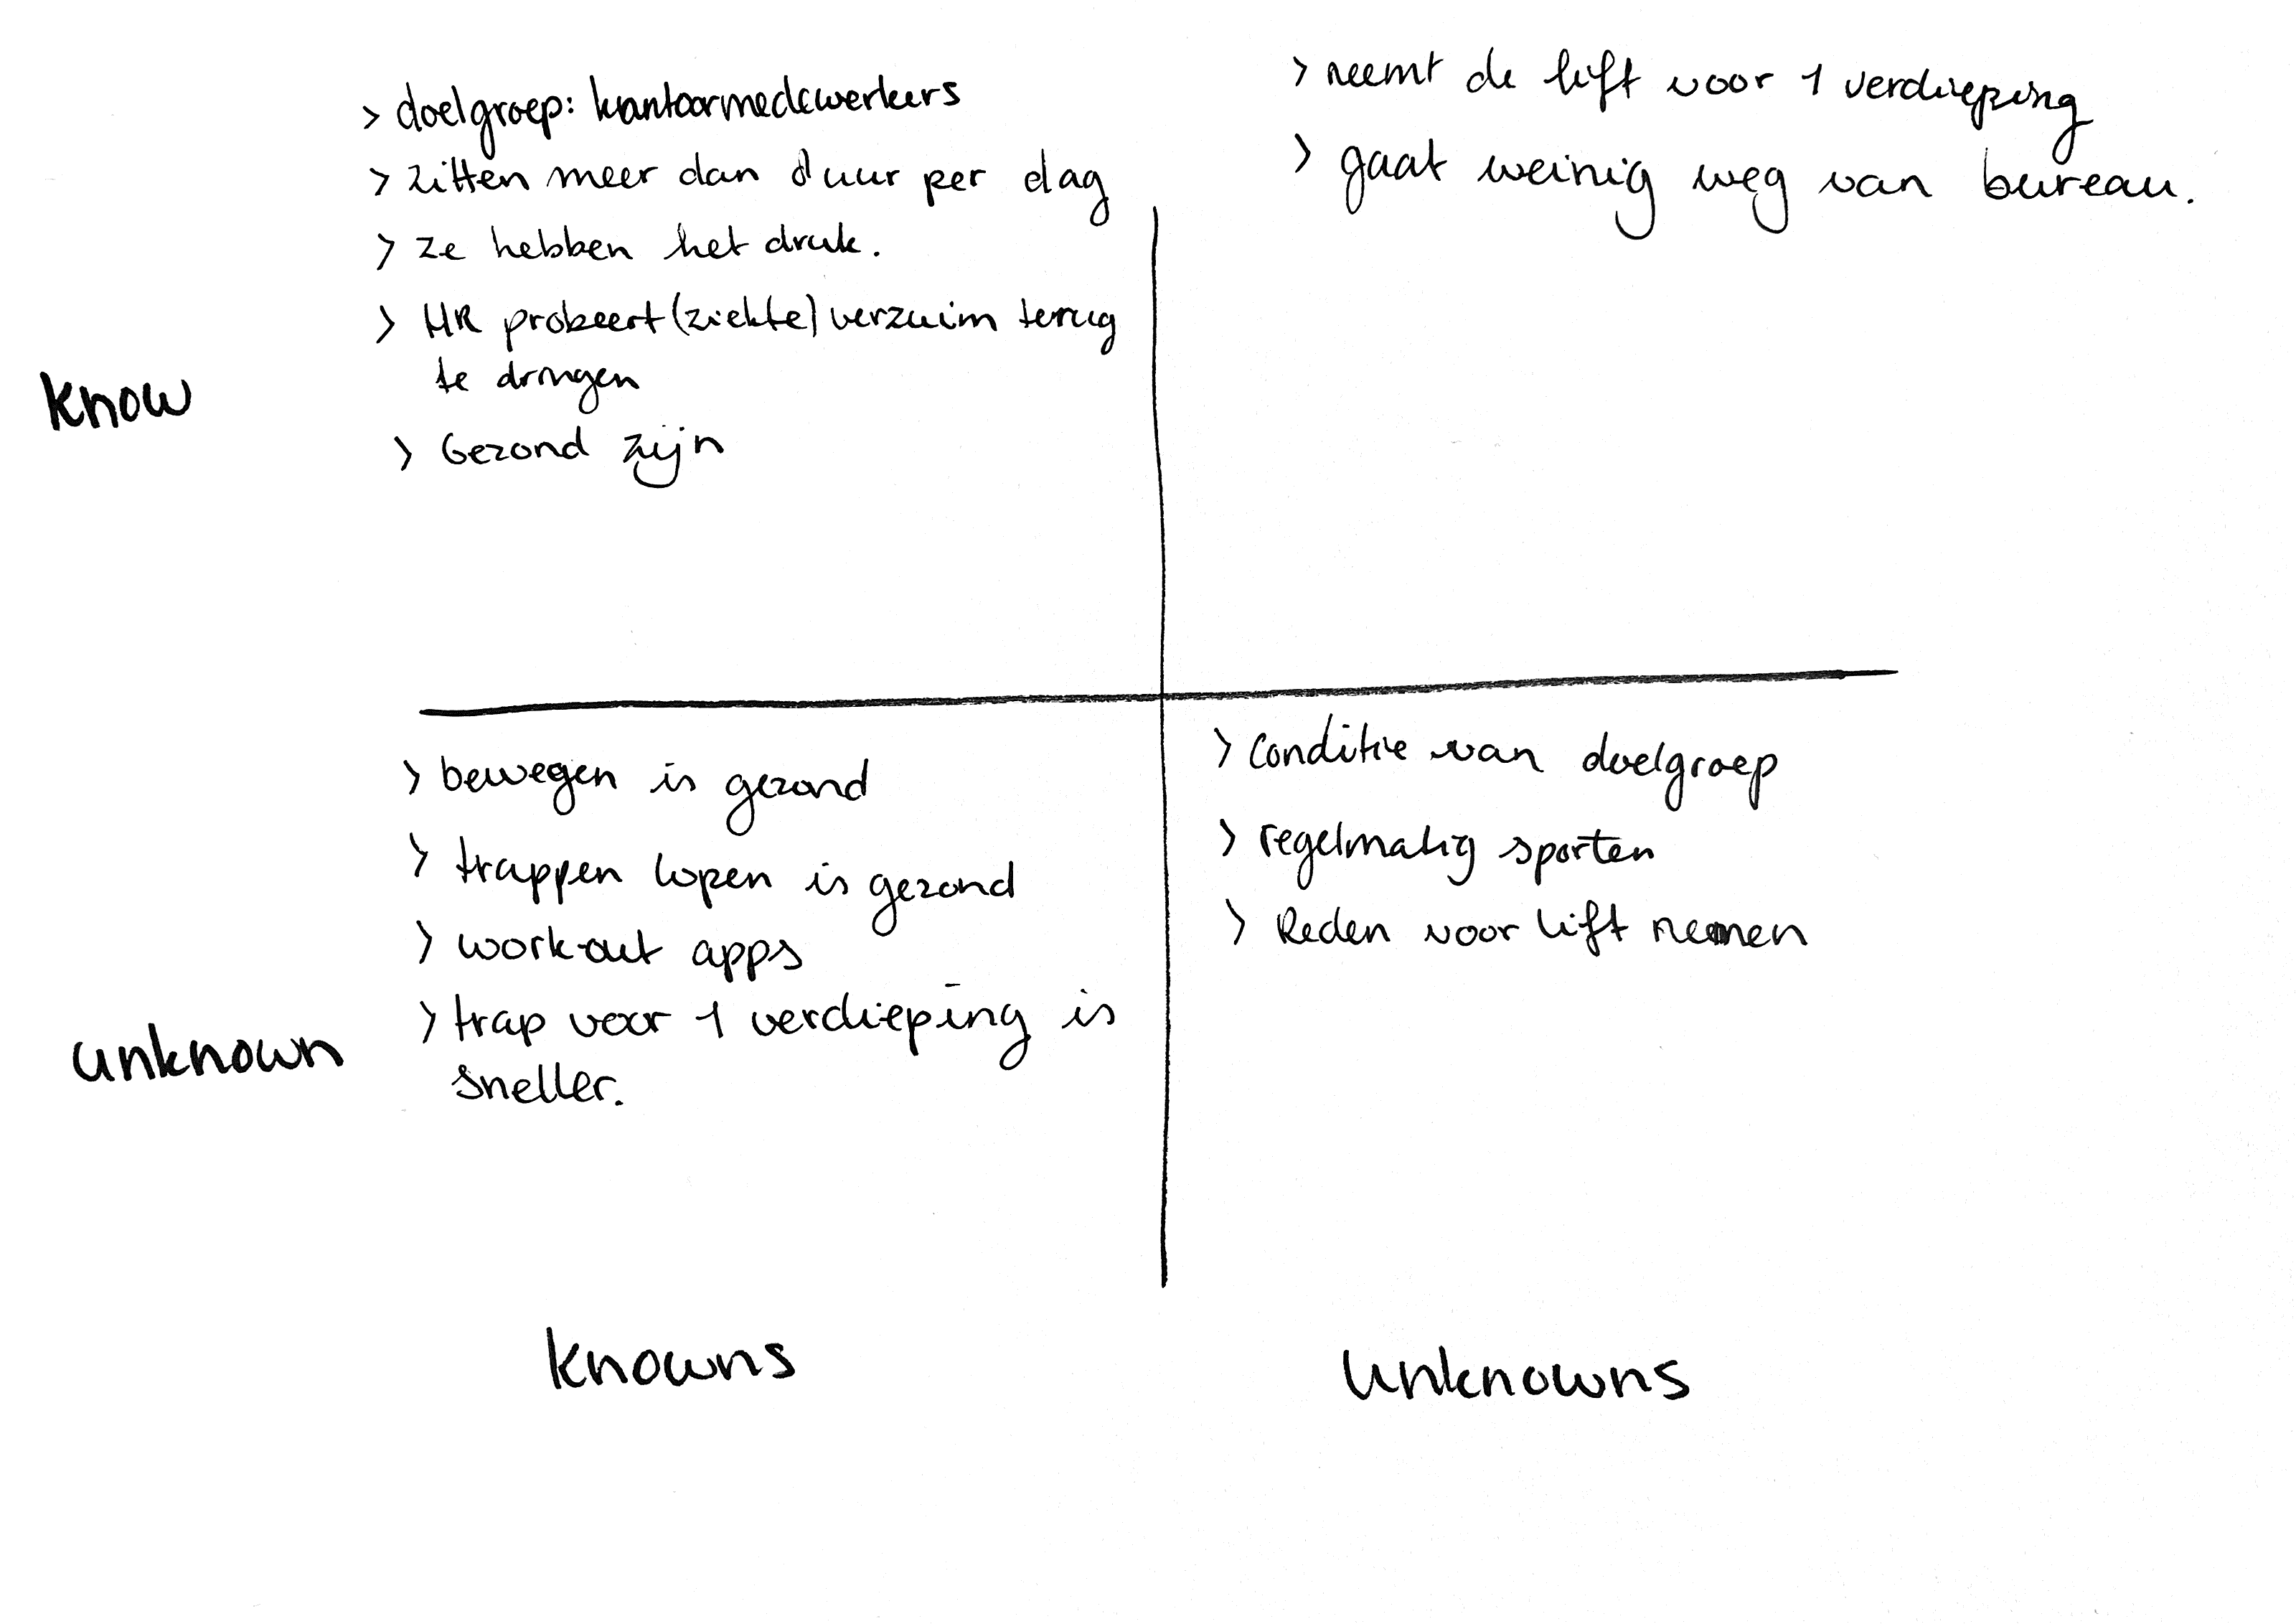 > doelgroep: kantoormedewerkers
> zitten meer dan uur per dag
> ze hebben het druk.
> HR probeert (ziekte) verzuim terug
te dringen
> Gezond zijn
> neemt de lift voor 1 verdieping
> gaat weinig weg van bureau.
know
> bewegen is gezond
> trappen lopen is gezond
> work-out apps
> trap voor 1 verdieping is
sneller.
> Conditie van doelgroep
> regelmatig sporten
> Reden voor lift nemen
unknown
knowns
unknowns